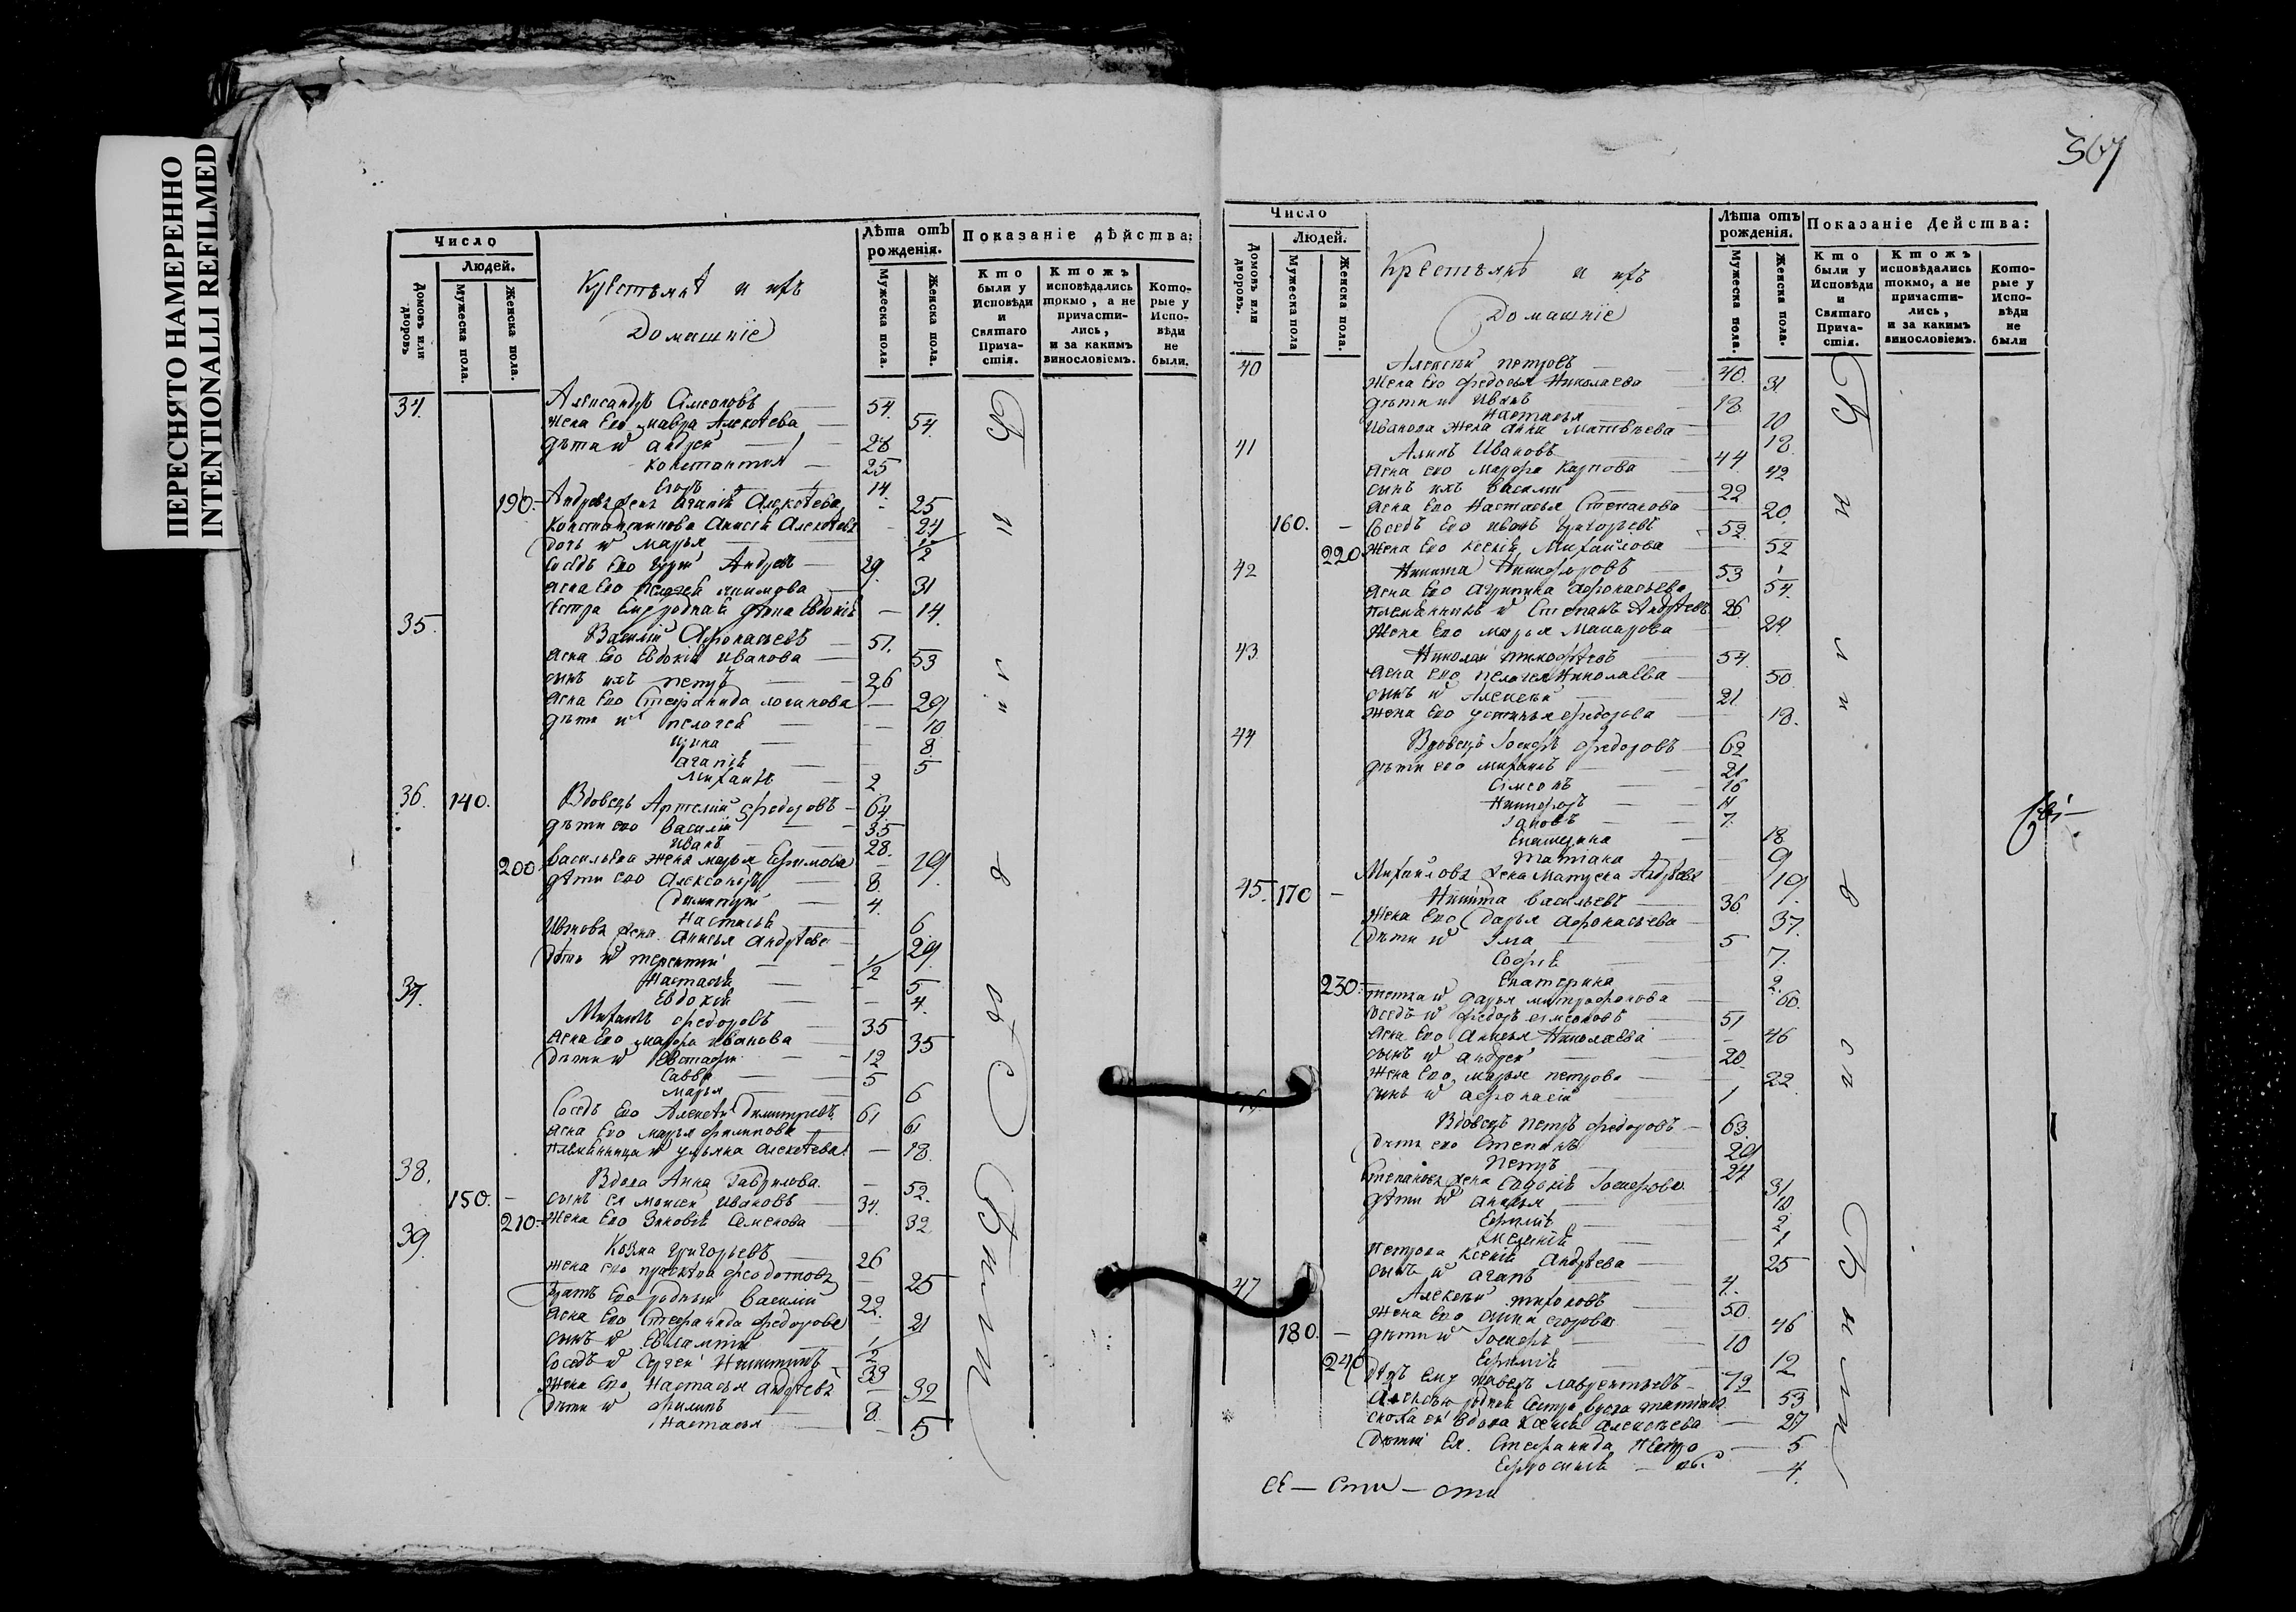 ПЕРЕСНЯТО НАМЕРЕННО
INTENTIONALLI REFILMED
367
Число
Людей.
Домовъ или дворовъ
Мужеска пола.
Женска пола.
Крестьянѣ и ихъ
Домашніе
Лѣта отъ рождения.
Мужеска пола.
Женска пола.
Показаніе дѣйства:
Кто были у Исповѣди и Святаго Прича- стія.
Ктожъ исповѣдались токмо, а не причасти- лись, и за какимъ винословіемъ.
Кото- рые у Испо- вѣди не были.
34. Александръ Симоновъ — 54.
жена Его Мавра Алексѣева — 54.
дѣти и Андрей — 28
Константин — 25
Егоръ — 14
190. Андреева жена Агапія Алексѣева 25
Константинова Анисія Алексѣева — 24
дочь и Марья — 1/2
сосѣдъ Его Андрей — 29.
жена Его Пелагея — 31
сестра Ему родная Евдокія — 14.
35. Василій Афонасьевъ — 51.
жена Его Евдокія Иванова — 53
сынъ ихъ Петръ — 26
жена Его Стефанида — 29
дѣти и Пелагея — 10
Ирина — 8
Агапія — 5
Михаилъ — 2
36. 140. Вдовецъ Артемий Федоровъ — 64.
дѣти его Василій — 35
Иванъ — 28.
200 Васильева жена Марья Ефимова 29
дѣти его Александръ — 8.
Димитрій — 4.
Настасья — 6
Иванова жена Анисья Андреева — 29
дѣти и Терентий — 1/2
Настасья — 5
Евдокія — 4.
37. Михаилъ Федоровъ — 35
жена Его Марфа Иванова — 35
дѣти и Евстафій — 12
Савва — 5
Марья — 6
сосѣдъ Его Алексѣй Димитревъ 61
жена Его Марья Филипова — 61
племянница и Ульяна Алексѣева — 18.
38. Вдова Анна Гаврилова. — 52.
150. — сынъ ея Моисей Ивановъ — 34.
210. жена Его Зиновія Семенова — 32.
39. Козма Григорьевъ — 26
жена его Праскева Федотова — 25
братъ Его родный Василій 22.
жена Его Стефанида Федорова — 21
сынъ и Евлампій — 1/2
сосѣдъ и Сергей Никитинъ — 33
жена Его Настасья Андреева — 32
дѣти и Филипъ — 8.
Настасья — 5
Число
Людей.
Домовъ или дворовъ.
Мужеска пола
Женска пола.
Крестьянѣ и ихъ
Домашніе
Лѣта отъ рождения.
Мужеска пола.
Женска пола.
Показаніе Действа:
Кто были у Исповѣди и Святаго Прича- стія.
Ктожъ исповѣдались токмо, а не причасти- лись, и за какимъ винословіемъ.
Кото- рые у Испо- вѣди не были
40 Алексѣй Петровъ — 40.
жена Его Федосья Николаева — 31
дѣти и Иванъ — 18.
Настасья — 10
Иванова жена Анна Матвѣева — 18.
41 Ивановъ — 44
жена его Марфа Карпова — 42
сынъ ихъ Василий — 22
жена Его Настасья Степанова — 20.
160. — сосѣдъ Его Иванъ Григорьевъ — 52
220 жена Его Ксенія Михайлова — 52
42 Никита Никифоровъ — 53
жена Его Агрипина Афонасьева 54.
племянникъ и Степанъ Андреевъ 26.
жена Его Марья Макарова — 24
43 Николай Тимофѣевъ — 54.
жена его Пелагея Николаева — 50
сынъ и Алексѣй — 21.
жена Его Устинья Федорова — 18.
44 Вдовецъ Іосифъ Федоровъ — 62
дѣти его Михаилъ — 21
Симеонъ — 16
Никифоръ — 11
Іаковъ — 7.
Екатерина — 18
Татіана — 9
Михайлова жена Андреева — 19.
45. 170 — Никита Васильевъ — 36
жена Его Дарья Афонасьева — 37.
дѣти и — 5
Софія — 7.
230. Екатерина — 2.
тетка и Дарья Митрофанова — 60
сосѣдъ и Федоръ Симеоновъ — 51
жена Его Анисья Николаева — 46
сынъ и Андрей — 20.
жена Его Марья Петрова — 22.
сынъ и Афонасій — 1
46 Вдовецъ Петръ Федоровъ — 63.
дѣти его Степанъ — 29
Петръ — 24
Степанова жена Евдокія Іосифова 31
дѣти и — 10
— 2
Меланія — 1
Петрова Ксенія Андреева — 25
сынъ и Агапъ — 4.
47 Алексѣй Тихоновъ — 50.
жена Его Анна Егорова — 46
180. — дѣти и Іосифъ — 10
240 Ефимія — 12
дядъ ему Павелъ Лаврентьевъ — 72
Алексѣю родная сестра вдова Татіана 53
сноха ея вдова Ксенія Алексѣева — 27
дѣти Ея Стефанида Петро — 5
Ефросинія — 4.
СЕ — Сти — сти